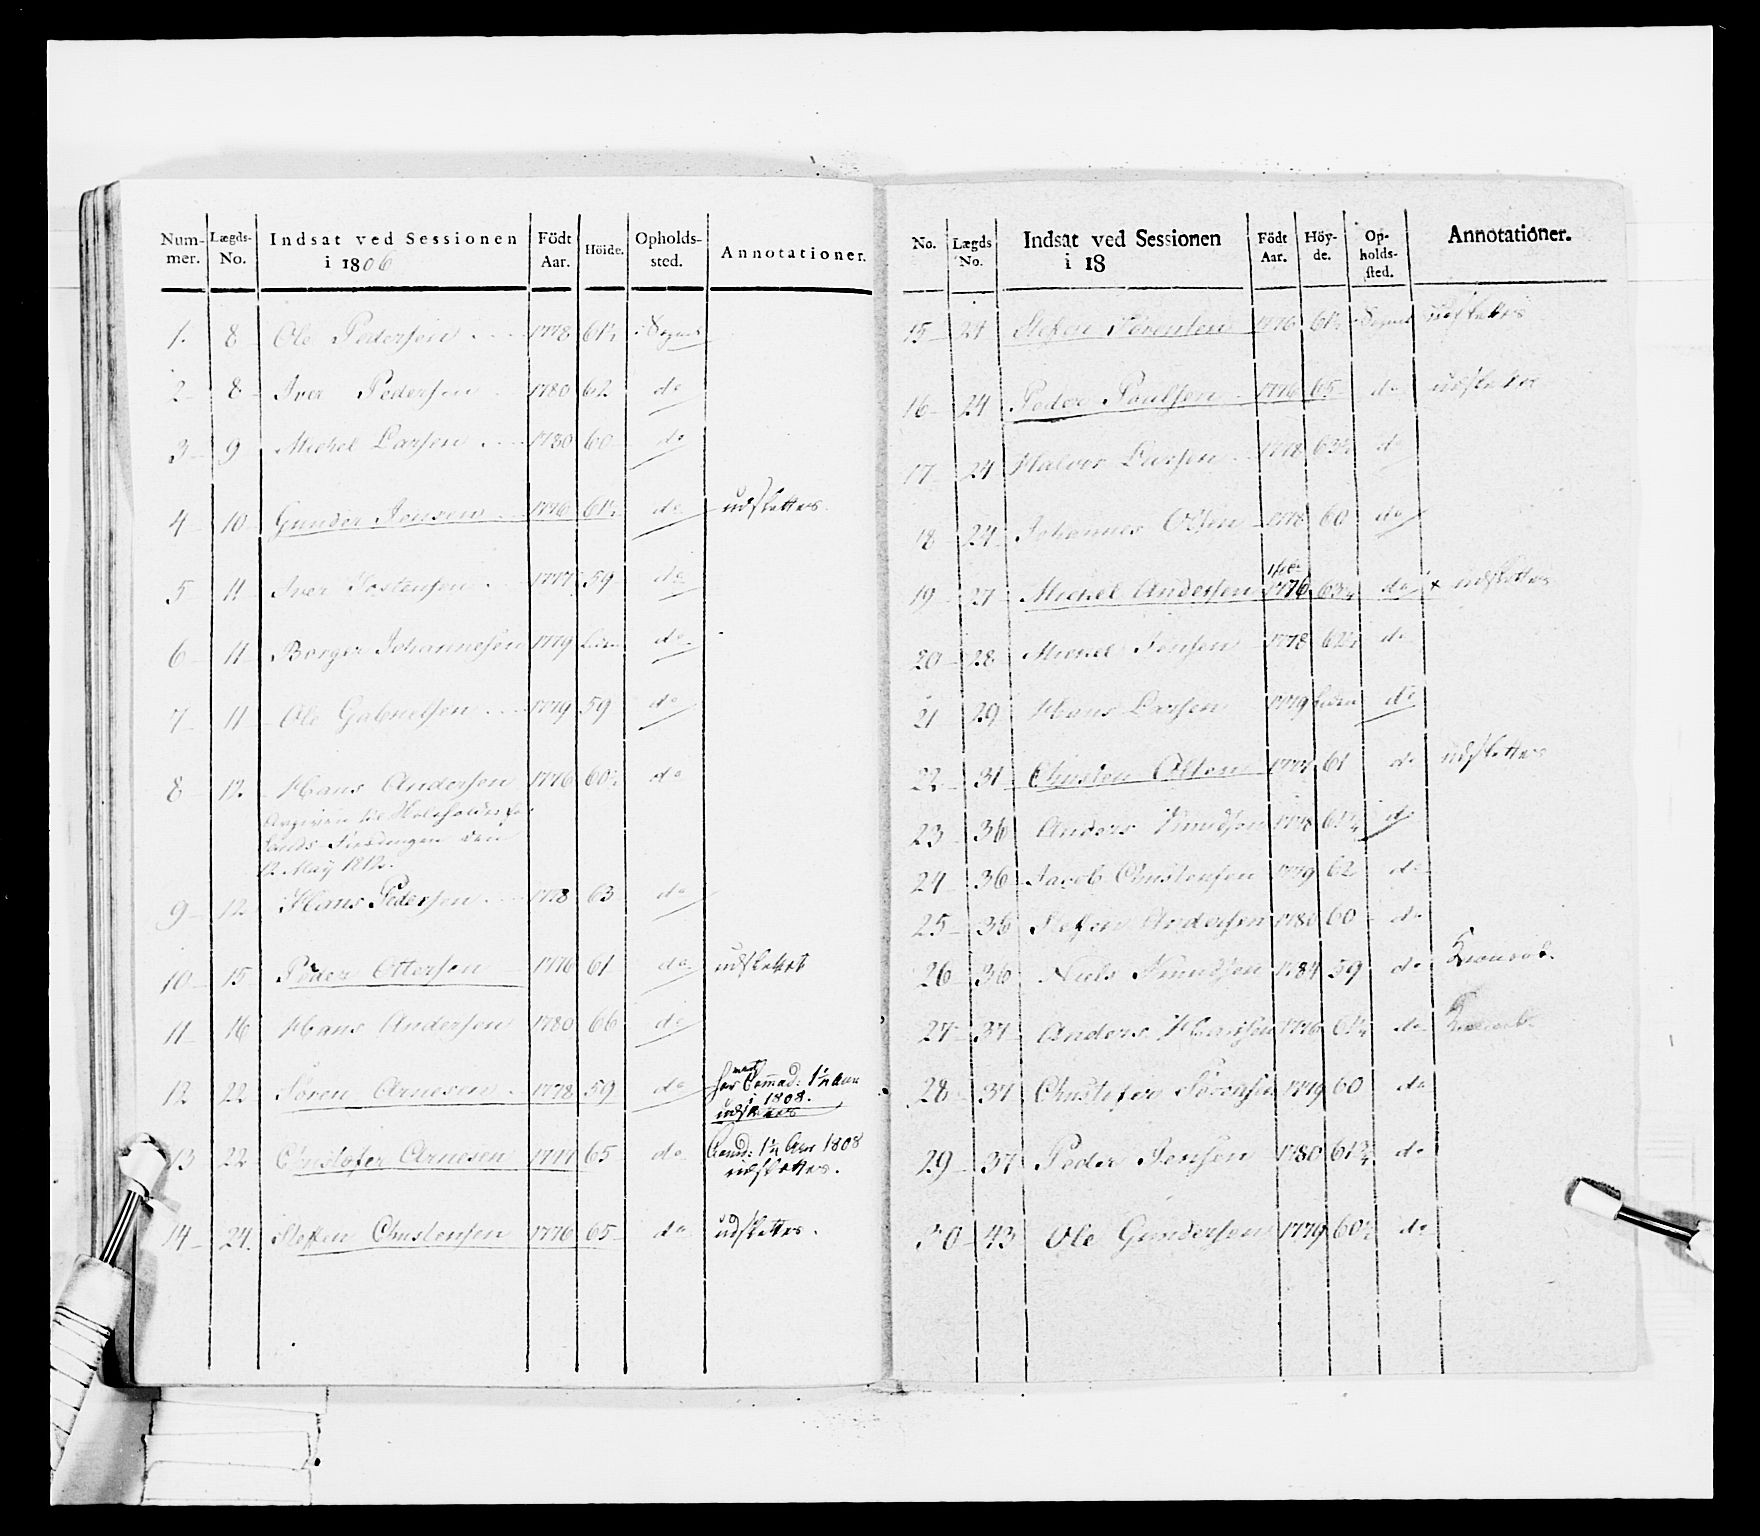 Num-
mer.
Lægds-
No.
Indsat ved Sessionen
i 1806
Födt
Aar.
Höide.
Opholds-
sted.
Annotationer.
1. 8 Ole Pedersen 1778 61½ Sognet
2 8 Iver Pedersen 1780 62 do
3 9 Michel Larsen 1780 60 do
4 10 Gunder Jensen 1776 61½ do udslettes.
5 11 Iver 1777 59 do
6 11 Borger Johannesen 1779 do
7 11 Ole Gabrielsen 1779 59 do
8 12 Hans Andersen 1776 60½ do
den
12 May 1812.
9 12 Hans Pedersen 1778 63 do
10 15 Peder Ottersen 1776 61 do udslettet
11 16 Hans Andersen 1780 66 do
12 22 Sören Arnesen 1778 59 do
i 1808.
13 22 Christofer Arnesen 1777 65 do Comd: 1½ Aar 1808
udslettes.
14 24. Steffen Christensen 1776 65 do udslettes.
No.
Lægds
No.
Indsat ved Sessionen
i 18
Födt
Aar.
Höy-
de.
Op-
holds-
sted.
Annotationer.
15 24 Stefen Sörensen 1776 61½ Sognet udslettes
16 24 Peder Poulsen 1776 65 do udslettes
17 24 Halvor Larsen 1778 63½ do
18 24 Johannes Olsen 1778 60 do
19 27 Michel Andersen 1776 63¼ do x udslettes
20 28 Michel Jensen 1778 62½ do
21 29 Hans Larsen 1779 do
22 31 Christen 1777 61 do udslettes
23 36 Anders Knudsen 1778 61¾ do
24 36 Jacob Christensen 1779 62 do
25 36 Stefen Andersen 1780 60 do
26 36 Niels Knudsen 1784 59 do
27 37 Anders Hansen 1776 61¼ do
28 37 Christofer 1779 60 do
29 37 Peder Jensen 1780 61¾ do
30 43 Ole Gundersen 1779 60½ do